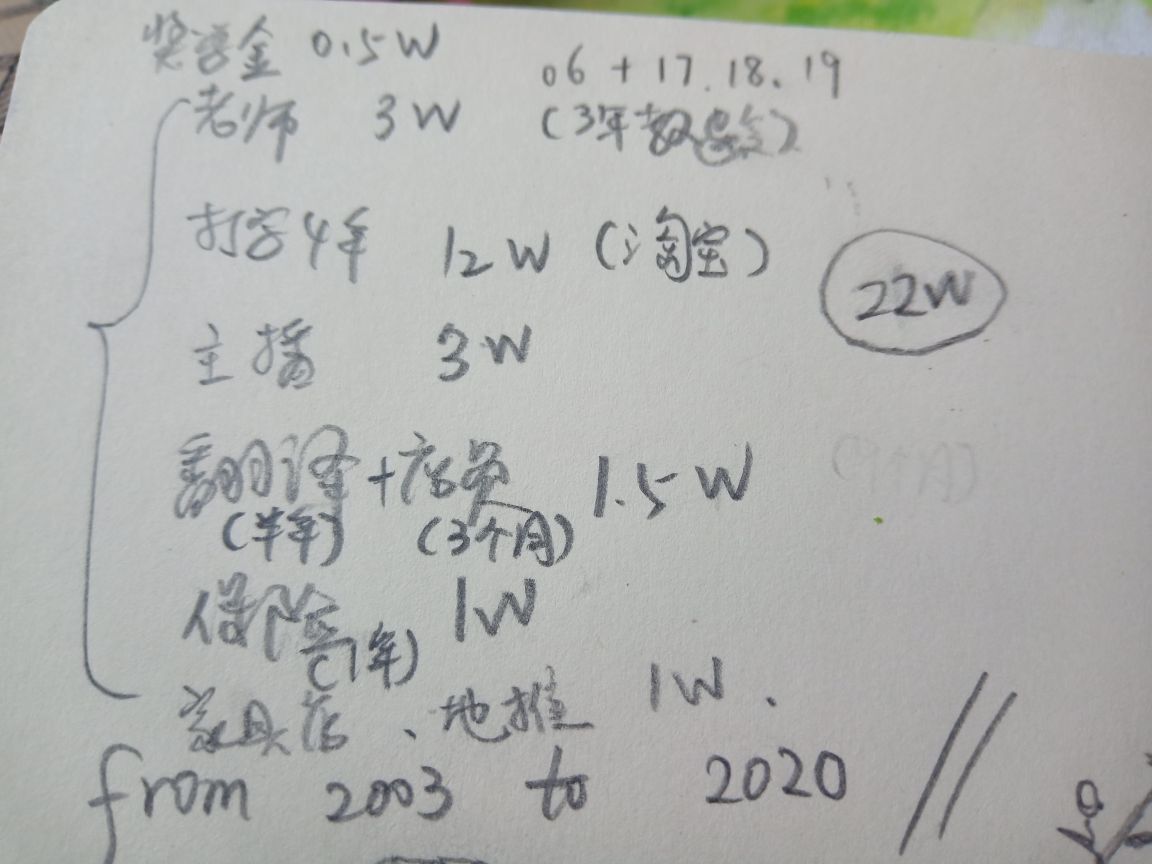 奖学金 0.5W
06 + 17.18.19
老师 3W (3年教龄)
打字4年 12W (淘宝)
22W
主播 3W
翻译+店员 1.5W
(半年) (3个月)
保险 1W
(1年)
家具店、地推 1W.
from 2003 to 2020